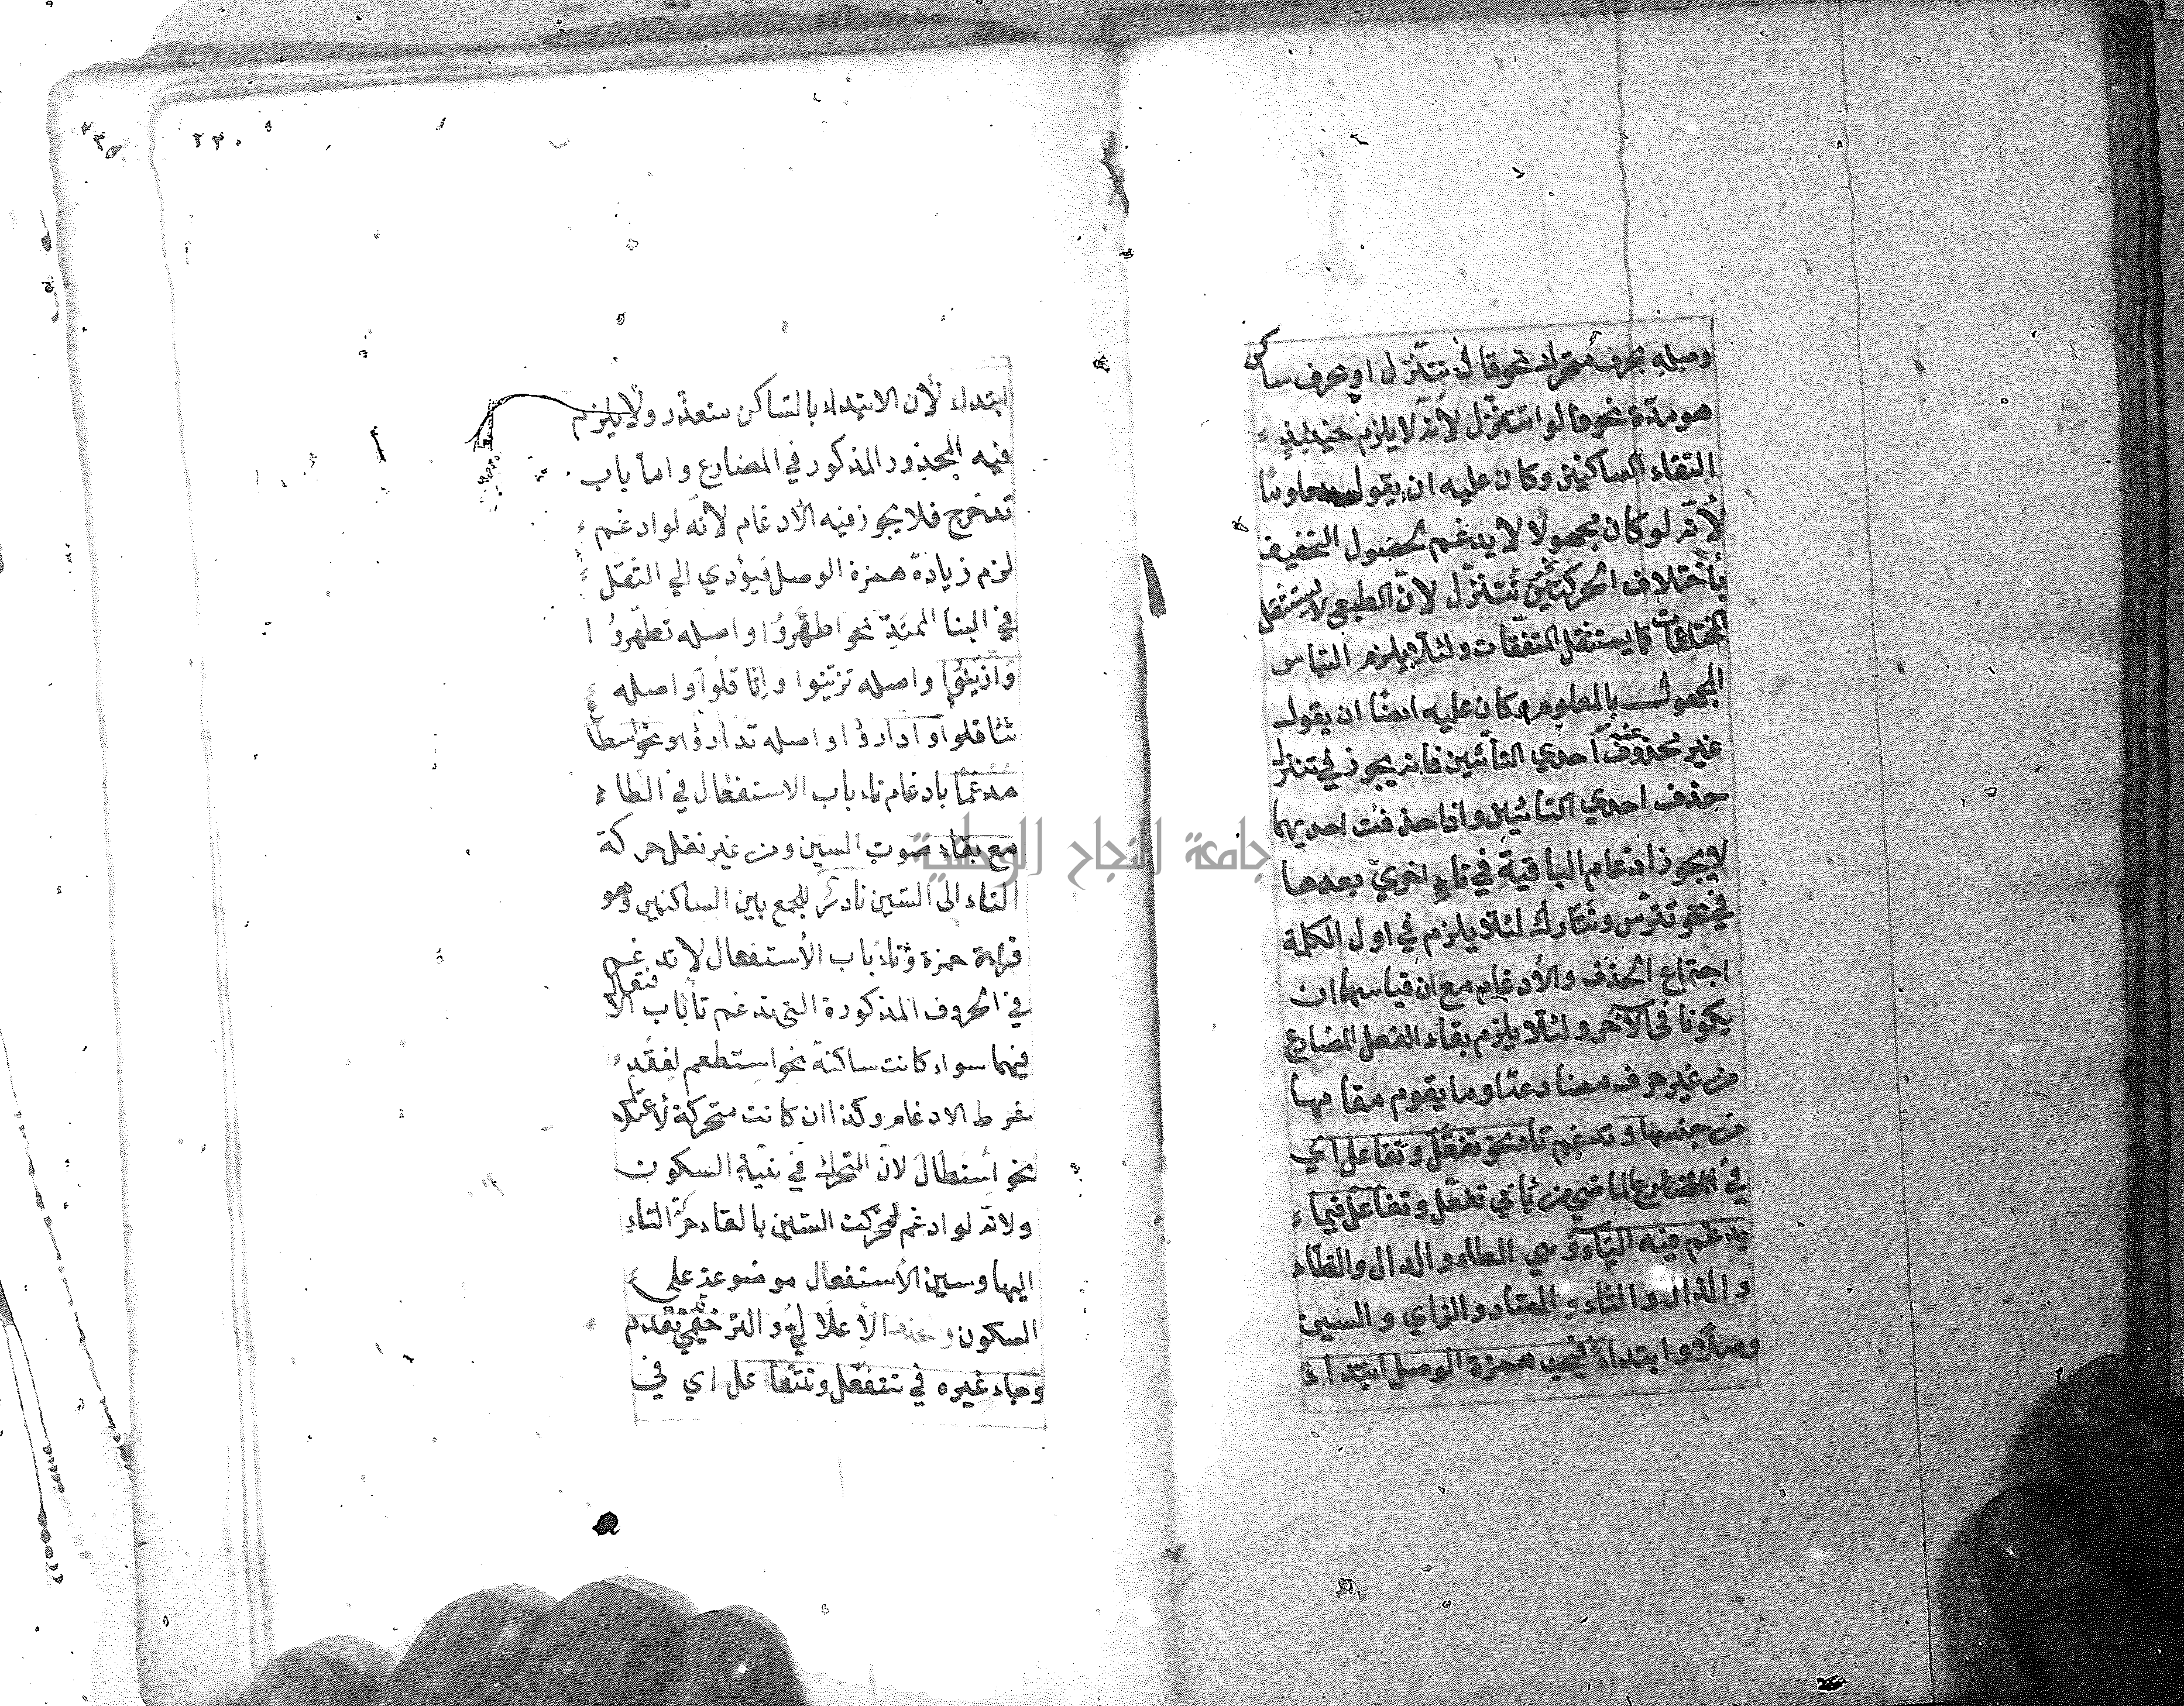 وصله بحرف متحرك نحو قال تتنزل او بحرف ساكن
هو مدة نحو قالوا تتنزل لانه لا يلزم حينئذ
التقاء الساكنين وكان عليه ان يقول معلومتا
لانه لو كان مجهولا لا يدغم لحصول التخفيف
باختلاف الحركتين نحو تتنزل لان الطبع لا يستثقل
المختلفات كما يستثقل المتفقات ولئلا يلزم التباس
المجهول بالمعلوم وكان عليه ايضا ان يقول
غير محذوف عنه احدي التائين فانه يجوز في تتنزل
حذف احدي التائين واذا حذفت احديهما
لا يجوز ادغام الباقية في تاء اخري بعدها
في نحو تترس وتتارك لئلا يلزم في اول الكلمة
اجتماع الحذف والادغام مع ان قياسهما ان
يكونا في الآخر ولئلا يلزم بقاء الفعل المضارع
من غير حرف مضارعتا وما يقوم مقامها
من جنسها وتدغم تاء نحو تفعّل وتفاعل اي
في الماضي من بابي تفعّل وتفاعل فيما
يدغم فيه التاء وهي الطاء والدال والظاء
والذال والثاء والصاد والزاي والسين
وصلا وابتداء فيجب همزة الوصل ابتداء
٢٣٥
٢٣٠
ابتداء لان الابتداء بالساكن متعذر ولا يلزم
فيه المحذور المذكور في المضارع واما باب
تدحرج فلا يجوز فيه الادغام لانه لو ادغم
لزم زيادة همزة الوصل فيؤدي الي الثقل
في البنا الممتد نحو اطهروا واصله تطهروا
وازينوا واصله تزينوا واثاقلوا واصله
تثاقلوا وادارؤا واصله تدارؤا ونحو اسطا
مدغما بادغام تاء باب الاستفعال في الطاء
مع بقاء صوت السين من غير نقل حركة
التاء الى السين نادر للجمع بين الساكنين وهو
قراءة حمزة وتاء باب الاستفعال لا تدغم
في الحروف المذكورة التي تدغم تا باب الافتعال
فيهما سواء كانت ساكنة نحو استطعم لفقد
شرط الادغام وكذا ان كانت متحركة لاعتلال
نحو استطال لان المتحرك في نية السكون
ولانه لو ادغم لحركت السين بالقاء حركة التاء
اليها وسين الاستفعال موضوعة على
السكون وحذف الاعلالي والترخيمي تقدم
وجاء غيره في تتفعل وتتفاعل اي في
جامعة النجاح الوطنية